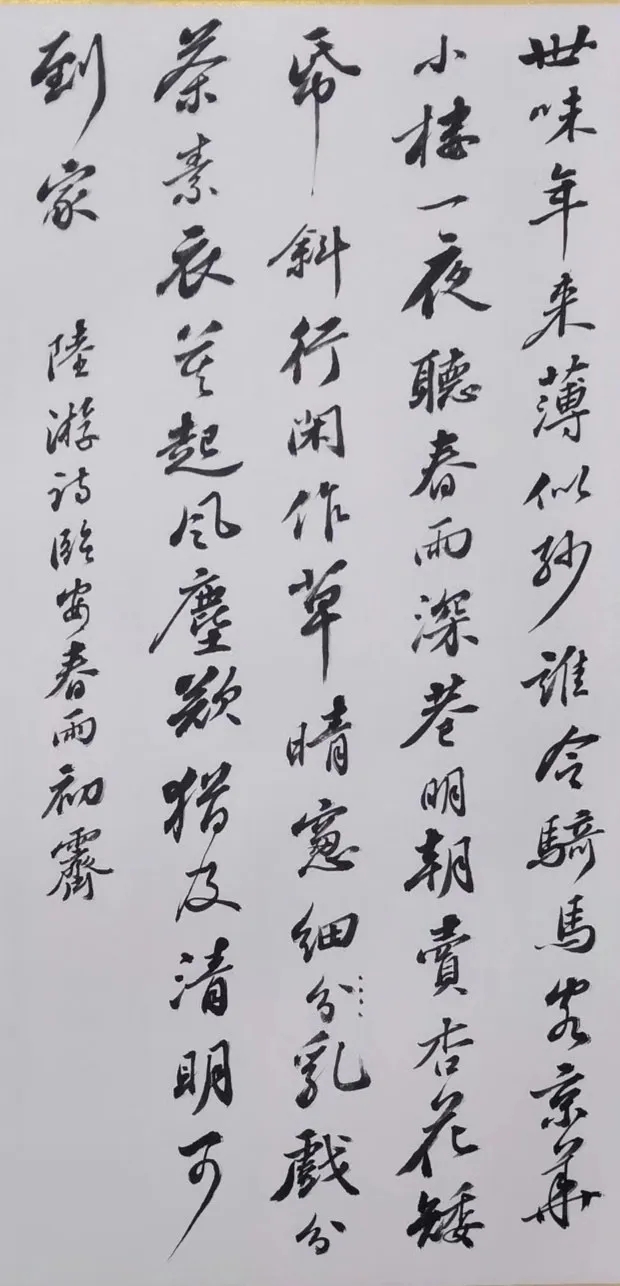 世味年来薄似紗誰令騎馬客京華
小樓一夜聽春雨深巷明朝賣杏花矮
紙斜行閑作草晴窗細分乳戲分
茶素衣莫起風塵歎猶及清明可
到家
陸游詩臨安春雨初霽